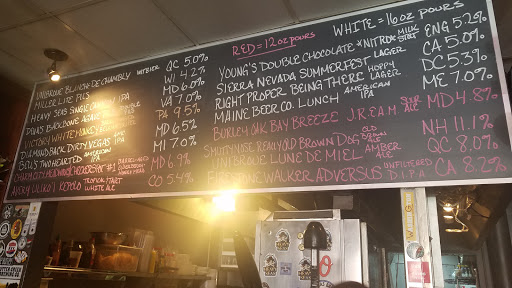 RED = 12oz POURS
WHITE = 16oz POURS
UNIBROUE BLANCHE DE CHAMBLY WITBIER QC 5.0%
MILLER LITE PILS WI 4.2%
HEAVY SEAS SINGLE IPA MD 6.0%
DEVILS BACKBONE VA 7.0%
VICTORY WHITE MONKEY PA 9.5%
DIAMONDBACK DIRTY VEGAS IPA MD 6.5%
BELL'S TWO HEARTED AMERICAN IPA MI 7.0%
#1 BARREL-AGED MD 6.9%
AVERY LILIKO'I KEPOLO TROPICAL TART WHITE ALE CO 5.4%
YOUNG'S DOUBLE CHOCOLATE *NITRO* MILK STOUT ENG 5.2%
SIERRA NEVADA SUMMERFEST LAGER CA 5.0%
RIGHT PROPER BEING THERE HOPPY LAGER DC 5.3%
MAINE BEER CO. LUNCH AMERICAN IPA ME 7.0%
BURLEY OAK BAY BREEZE J.R.E.A.M. SOUR ALE MD 4.8%
SMUTTYNOSE REALLY OLD BROWN DOG OLD NH 11.1%
UNIBROUE LUNE DE MIEL AMBER ALE QC 8.0%
FIRESTONE WALKER ADVERSUS UNFILTERED D.I.P.A CA 8.2%